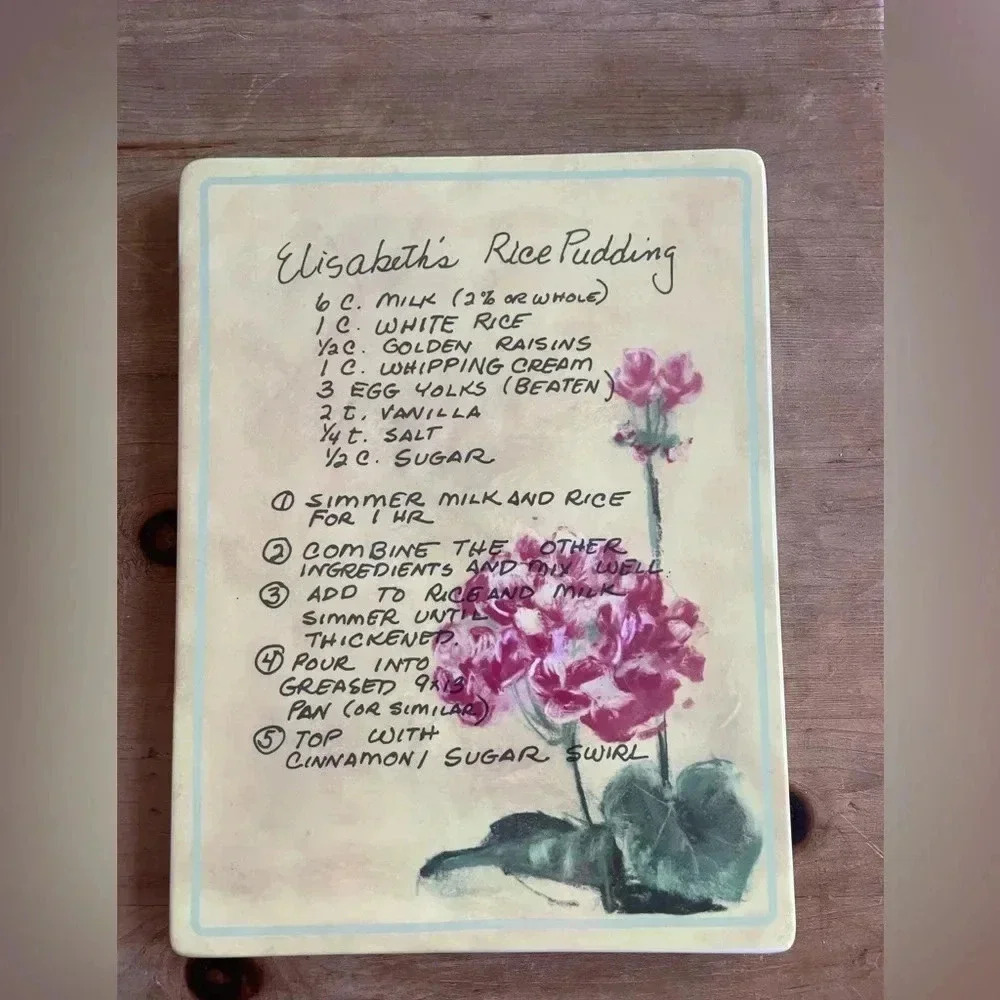 Elisabeth's Rice Pudding
6 C. MILK (2% OR WHOLE)
1 C. WHITE RICE
1/2 C. GOLDEN RAISINS
1 C. WHIPPING CREAM
3 EGG YOLKS (BEATEN)
2 t. VANILLA
1/4 t. SALT
1/2 C. SUGAR
① SIMMER MILK AND RICE
FOR 1 HR
② COMBINE THE OTHER
INGREDIENTS AND MIX WELL.
③ ADD TO RICE AND MILK
SIMMER UNTIL
THICKENED.
④ POUR INTO
GREASED 9x13
PAN (OR SIMILAR)
⑤ TOP WITH
CINNAMON/ SUGAR SWIRL